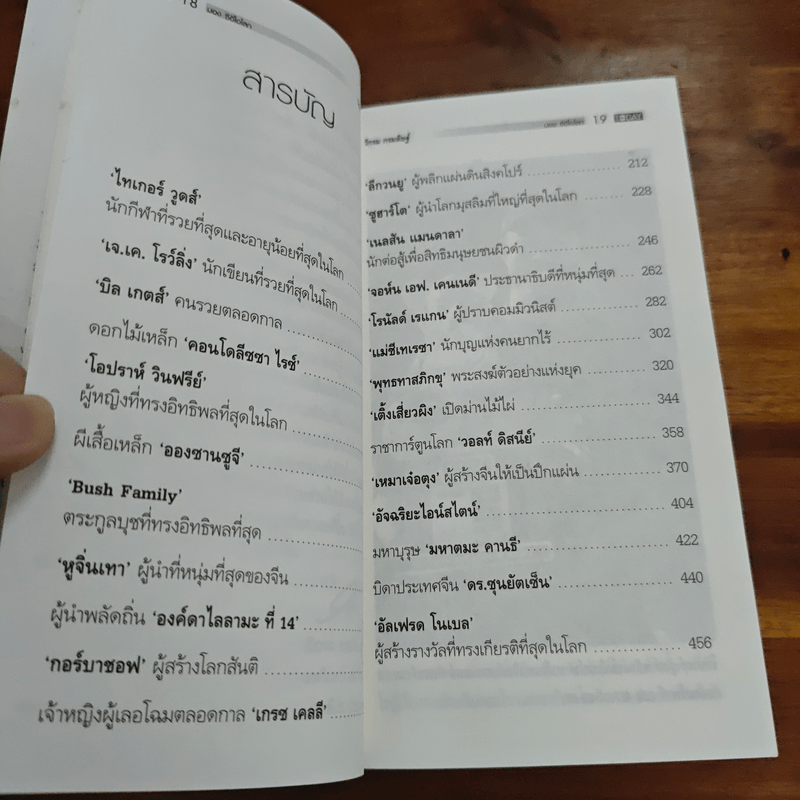 18
มอง ซีอีโอโลก
สารบัญ
‘ไทเกอร์ วูดส์’
นักกีฬาที่รวยที่สุดและอายุน้อยที่สุดในโลก
‘เจ.เค. โรว์ลิ่ง’ นักเขียนที่รวยที่สุดในโลก
‘บิล เกตส์’ คนรวยตลอดกาล
ดอกไม้เหล็ก ‘คอนโดลีซซา ไรซ์’
‘โอปราห์ วินฟรีย์’
ผู้หญิงที่ทรงอิทธิพลที่สุดในโลก
ผีเสื้อเหล็ก ‘อองซานซูจี’
‘Bush Family’
ตระกูลบุชที่ทรงอิทธิพลที่สุด
‘หูจิ่นเทา’ ผู้นำที่หนุ่มที่สุดของจีน
ผู้นำพลัดถิ่น ‘องค์ดาไลลามะ ที่ 14’
‘กอร์บาชอฟ’ ผู้สร้างโลกสันติ
เจ้าหญิงผู้เลอโฉมตลอดกาล ‘เกรซ เคลลี่’
วิกรม กรมดิษฐ์
มอง ซีอีโอโลก 19
‘ลีกวนยู’ ผู้พลิกแผ่นดินสิงคโปร์ 212
‘ซูฮาร์โต’ ผู้นำโลกมุสลิมที่ใหญ่ที่สุดในโลก 228
‘เนลสัน แมนดาลา’
นักต่อสู้เพื่อสิทธิมนุษยชนผิวดำ 246
‘จอห์น เอฟ. เคนเนดี’ ประธานาธิบดีที่หนุ่มที่สุด 262
‘โรนัลด์ เรแกน’ ผู้ปราบคอมมิวนิสต์ 282
‘แม่ชีเทเรซา’ นักบุญแห่งคนยากไร้ 302
‘พุทธทาสภิกขุ’ พระสงฆ์ตัวอย่างแห่งยุค 320
‘เติ้งเสี่ยวผิง’ เปิดม่านไม้ไผ่ 344
ราชาการ์ตูนโลก ‘วอลท์ ดิสนีย์’ 358
‘เหมาเจ๋อตุง’ ผู้สร้างจีนให้เป็นปึกแผ่น 370
‘อัจฉริยะไอน์สไตน์’ 404
มหาบุรุษ ‘มหาตมะ คานธี’ 422
บิดาประเทศจีน ‘ดร.ซุนยัตเซ็น’ 440
‘อัลเฟรด โนเบล’
ผู้สร้างรางวัลที่ทรงเกียรติที่สุดในโลก 456